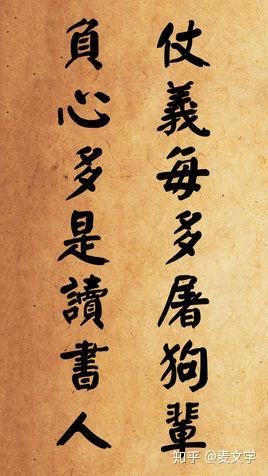 仗義每多屠狗輩
負心多是讀書人
知乎 @麦文字